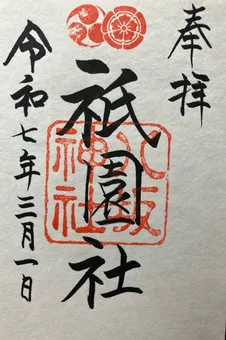 奉拝
祇園社
八坂神社
令和七年三月一日